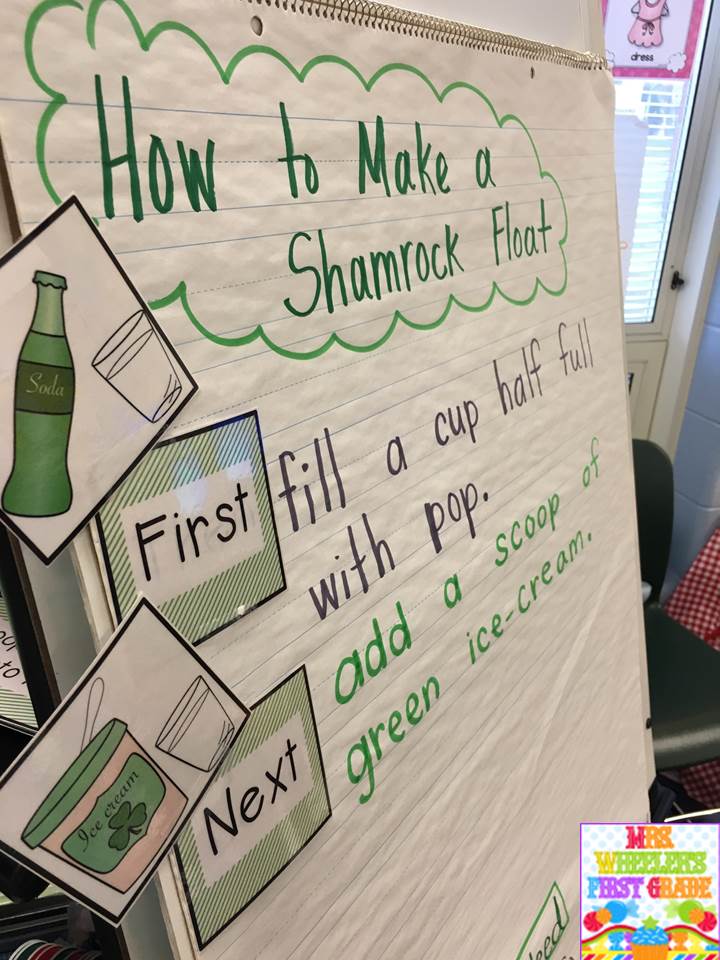 dress
How to Make a
Shamrock Float
Soda
First fill a cup half full
with pop.
Next add a scoop of
green ice-cream.
Ice cream
to
MRS
WHEELER'S
FIRST GRADE